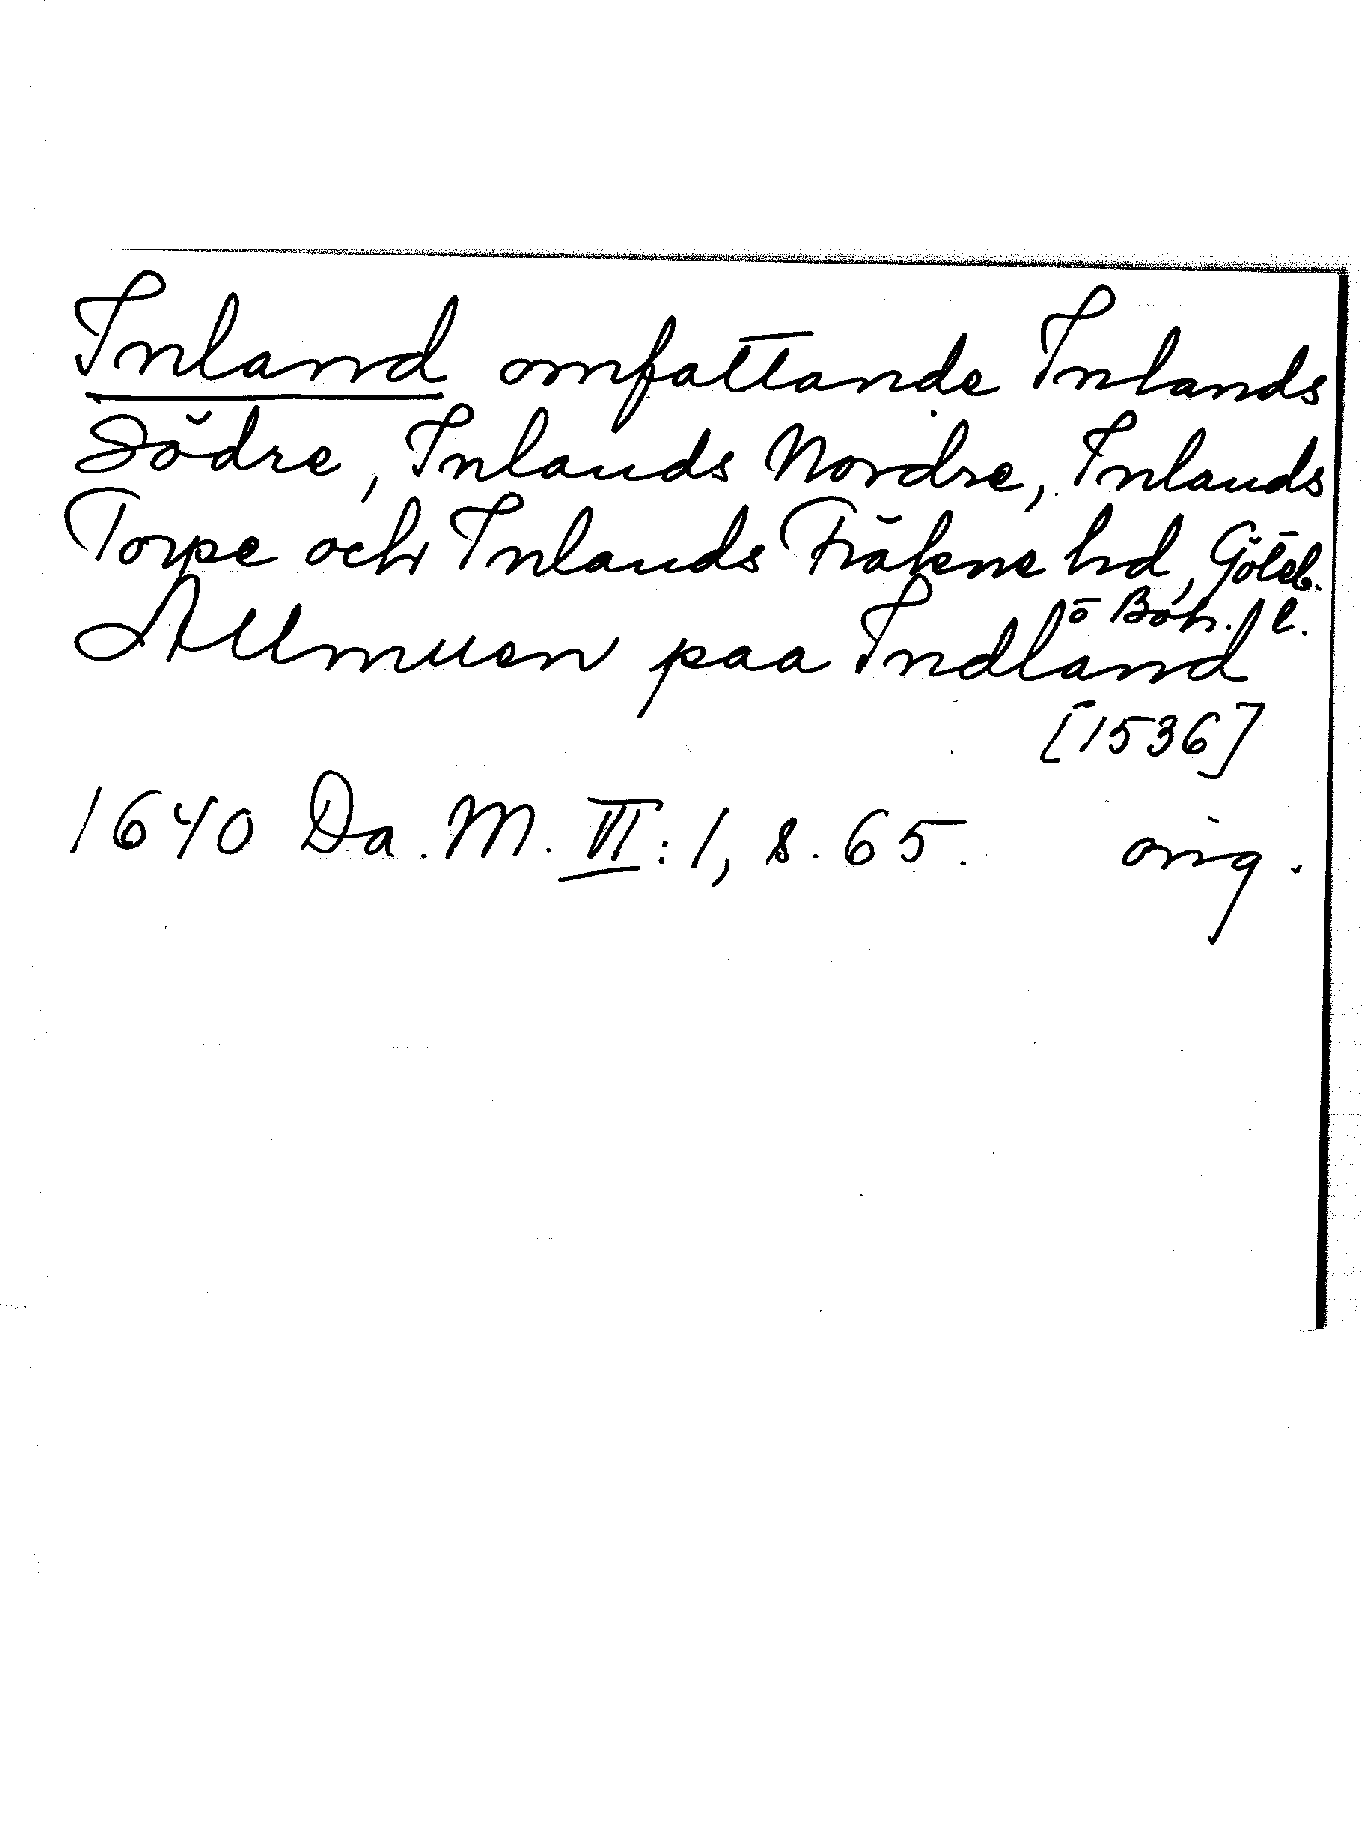 Inland omfattande Inlands
Södre, Inlands Nordre, Inlands
Torpe och Inlands Fräkne hd, Göteb.
o Boh. l.
Allmuen paa Indland
[1536]
1640 Da. M. VI: 1, s. 65. orig.